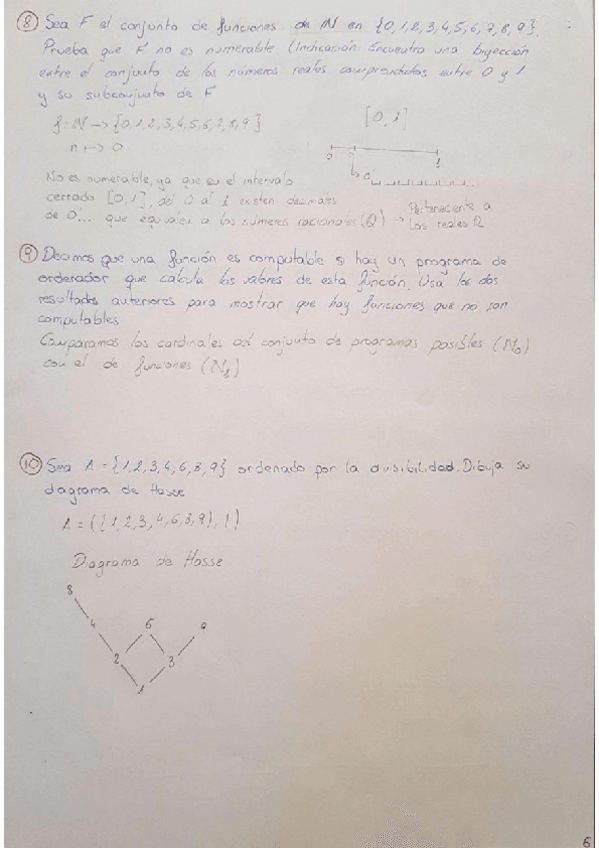 8 Sea F el conjunto de funciones de IN en {0,1,2,3,4,5,6,7,8,9}.
Prueba que F no es numerable (Indicación Encuentra una biyección
entre el conjunto de los números reales comprendidos entre 0 y 1
y su subconjunto de F
f: IN → {0,1,2,3,4,5,6,7,8,9}
n ↦ 0
[0,1]
0 1
0'
No es numerable, ya que en el intervalo
cerrado [0,1], del 0 al 1 existen decimales
de 0'... que equivalen a los números racionales (Q) → Perteneciente a
los reales R
9 Decimos que una función es computable si hay un programa de
ordenador que calcula los valores de esta función. Usa los dos
resultados anteriores para mostrar que hay funciones que no son
computables
Comparamos los cardinales del conjunto de programas posibles (ℵ₀)
con el de funciones (ℵ₁)
10 Sea A = {1,2,3,4,6,8,9} ordenado por la divisibilidad. Dibuja su
diagrama de Hasse
A = ({1,2,3,4,6,8,9}, |)
Diagrama de Hasse
8
4 6 9
2 3
1
6